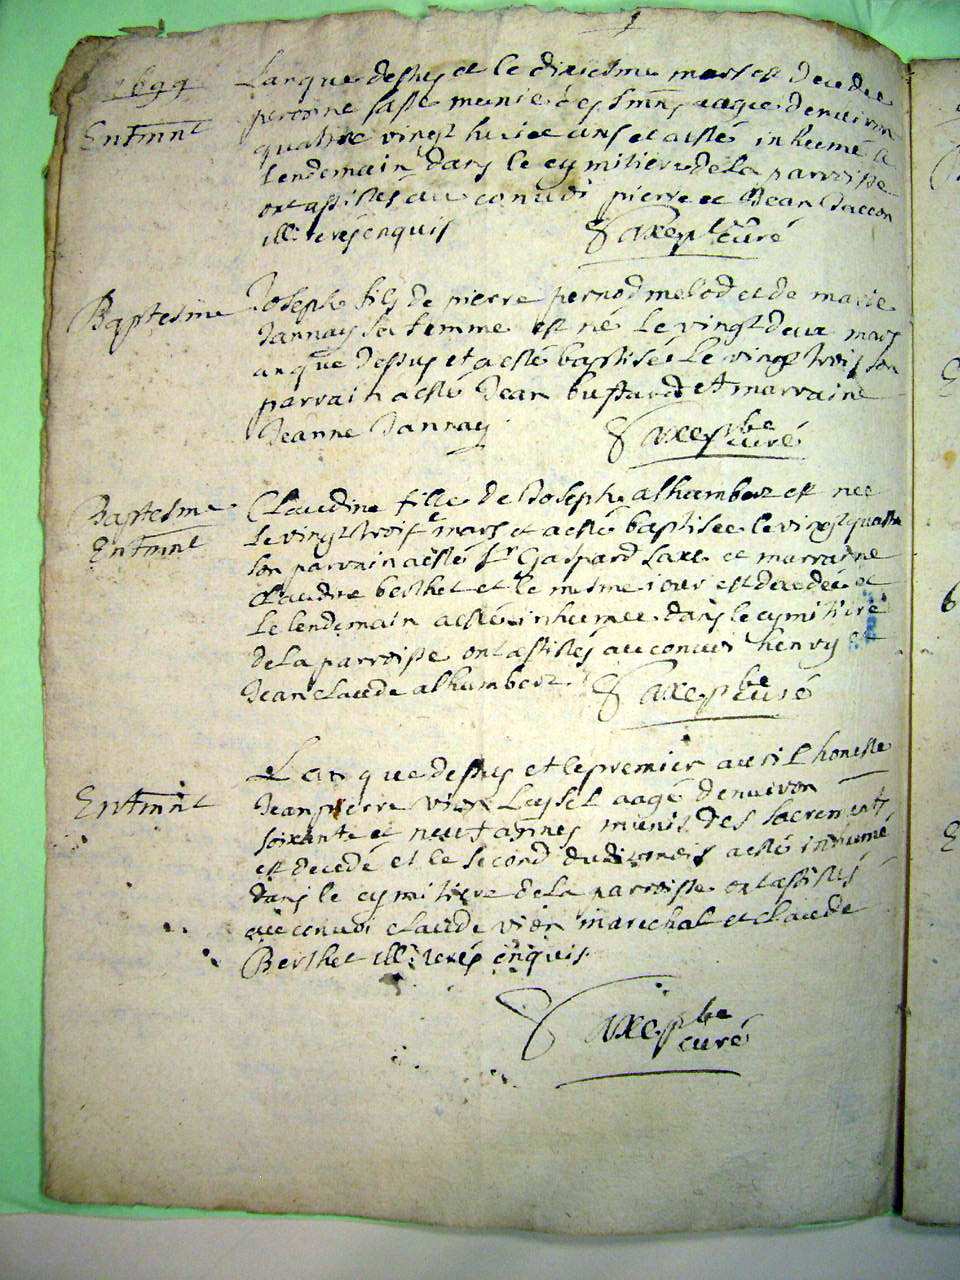 1699
Entmnt
Lan que dessus et le dixiesme mars est decedee
peronne munie des Smns aagee denuiron
quatre vingt huict ans et a esté inhumé a
lendemain dans le cymitiere de la parroisse
ont assistes au conuoi pierre et Jean Jaccon
ill. re enquis Saxe pbre curé
Baptesme
Joseph fils de pierre pernod melod et de marie
Jannay sa femme est né le vingt deux mars
an que dessus et a esté baptisé le vingt trois son
parrain a esté Jean bussard et marraine
Jeanne Jannay Saxe pbre curé
Baptesme
Entmnt
Claudine fille de Joseph alhambert est nee
le vingt troise mars et a esté baptisee le vingt quatre
son parrain a esté Sr Gaspard Saxe et marraine
Claudine berthet et le mesme iour est decedée et
le lendemain a esté inhumee dans le cymitiere
de la parroisse ont assistés au conuoi henry et
Jean claude alhambert Saxe pbre curé
Entmnt
Lan que dessus et le premier auril honeste
Jean pierre vion Luysel aagé denuiron
soixante et neuf annes munis des sacrements
est decedé et le second dudit mois a esté inhumé
dans le cymitiere de la parroisse ont assistés
au conuoi claude vion marechal et claude
Berthet ill. re enquis
Saxe pbre
curé